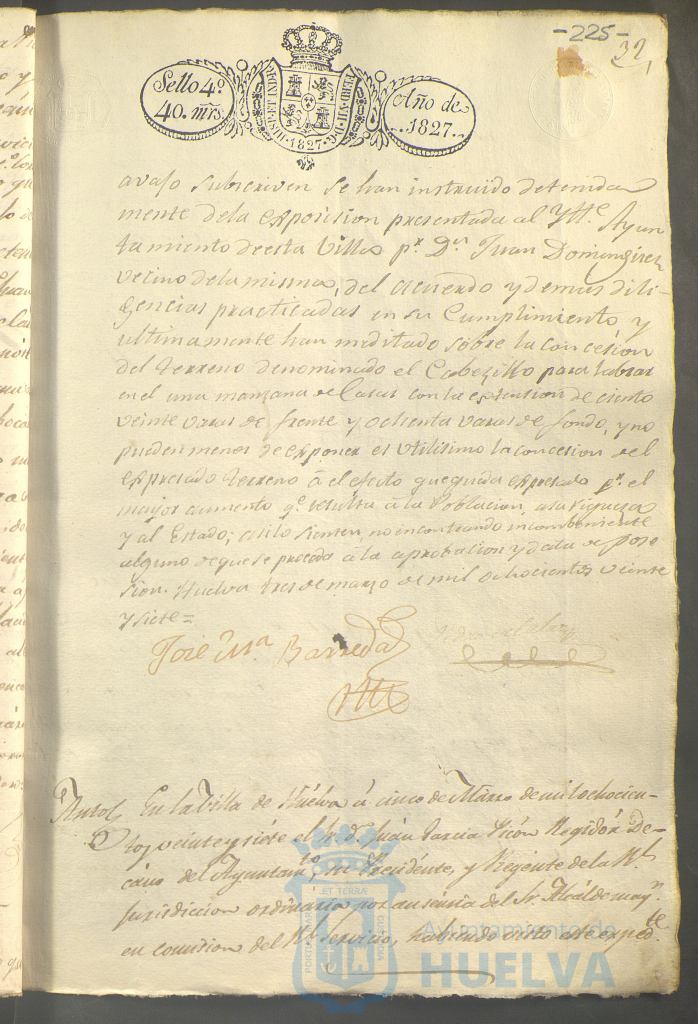 -225-
32,
Sello 4º
40. mrs.
HISP. ET IND. R.
FERD. VII. D. G.
1827
Año de
1827.
avajo subscriven se han instruido detenida
mente dela exposicion presentada al Ylle. Ayun
tamiento de esta Villa pr. Dn. Juan Dominguez
vecino dela misma, del acuerdo y demas dili-
gencias practicadas en su Cumplimiento, y
ultimamente han meditado sobre la concesion
del terreno denominado el Cabezillo para labrar
en el una manzana de Casas con la extension de ciento
veinte varas de frente y ochenta varas de fondo, y no
pueden menos de exponer es utilisimo la concesion del
expresado terreno á el efecto que queda expresado pr. el
mayor aumento qe. resulta á la Poblacion, a la riqueza
y al Estado; asi lo sienten, no encontrando incombeniente
alguno de que se proceda á la aprobacion y data de pose
sion. Huelva tres de marzo de mil ochocientos veinte
y siete=
José Ma. Barreda
Auto En la Villa de Huelva á cinco de Marzo de mil ochocien-
tos veinte y siete el Sr. D. Juan Garcia Regidór De-
cano del Ayuntamto, su Presidente, y Regente de la Rl.
Jurisdicion ordinaria por ausencia del Sr. Alcalde mayr.
en comision del Rl. Servicio, habiendo visto este expedte.
PORTUS MARIS
ET TERRÆ
CUSTODIA
Ayuntamiento de
HUELVA